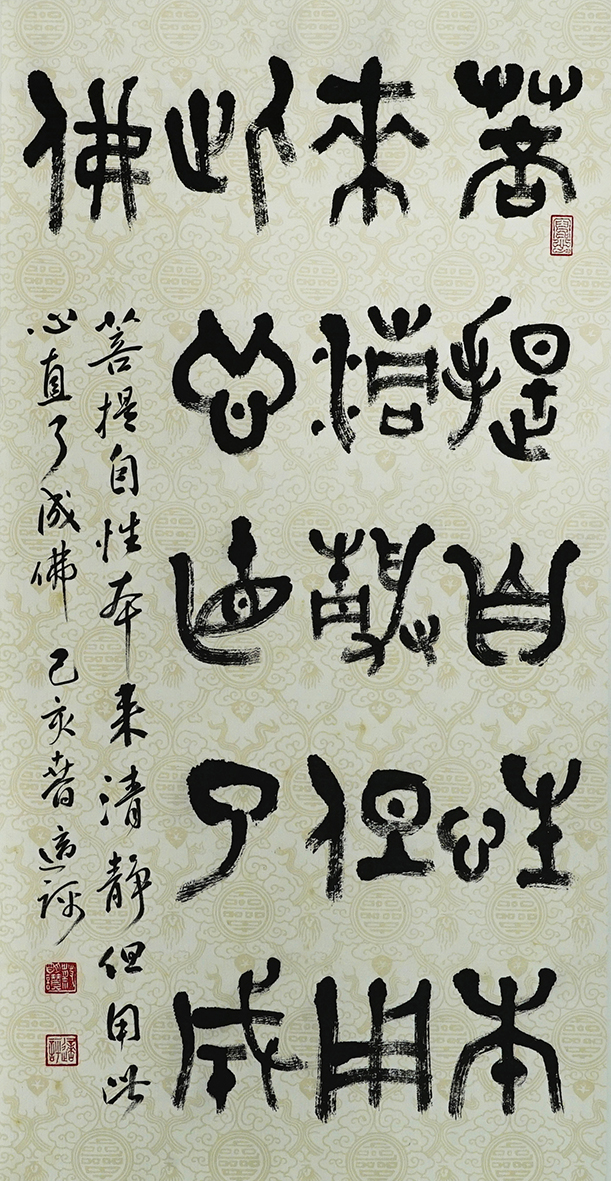 菩提自性本
來清靜但用
此心直了成
佛
菩提自性本来清静但用此
心直了成佛 己亥春